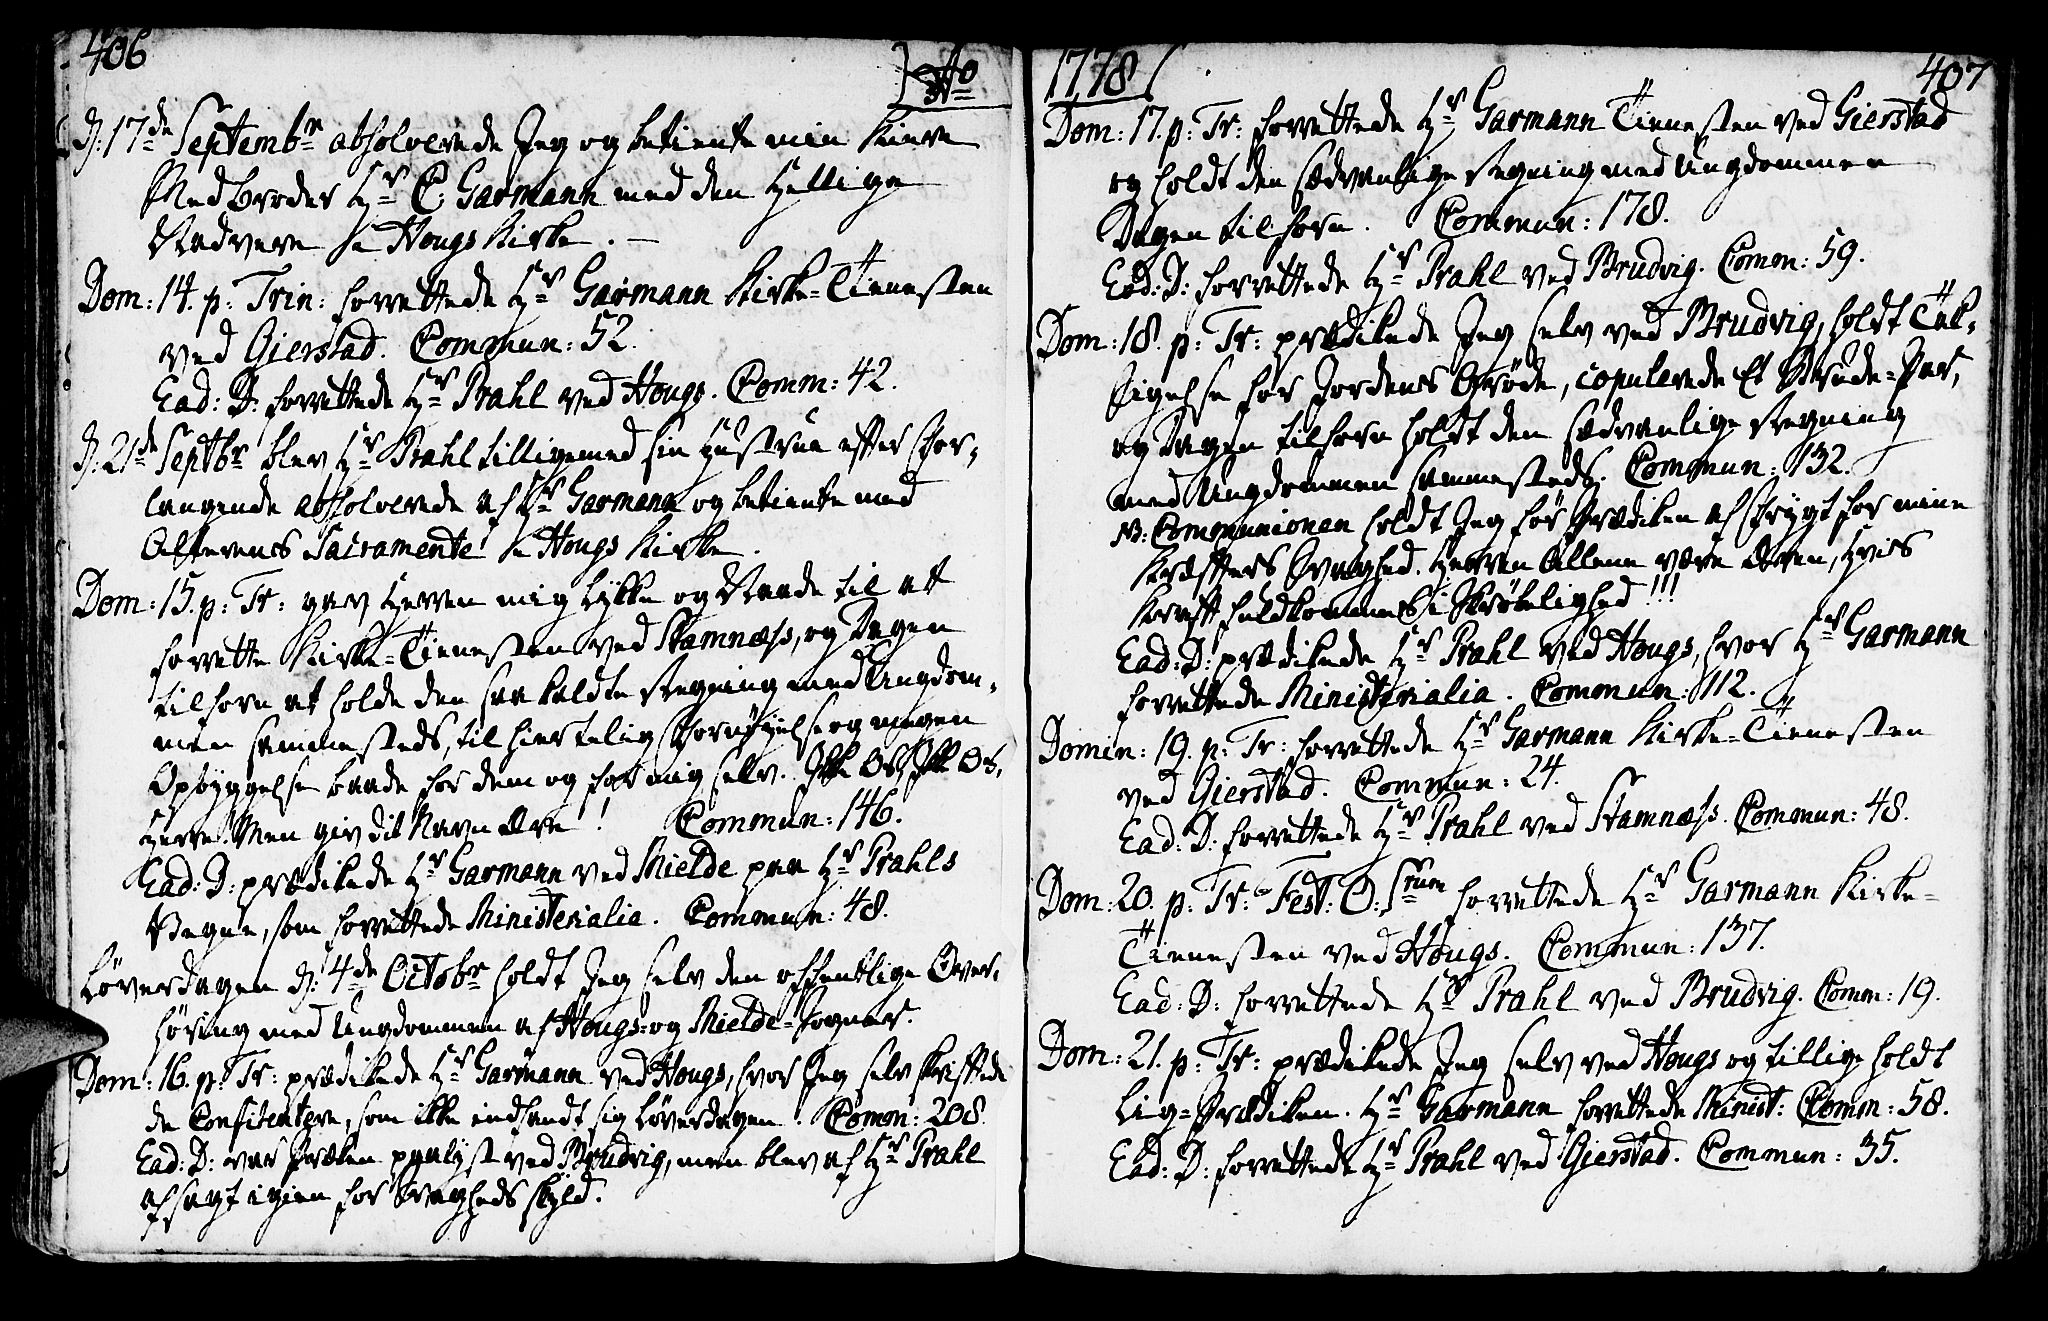 406
Ao
D: 17de Septembr absolverede Jeg og betiente min kiere
Medbroder Hr C. Garmann med den Hellige
Nadvere i Hougs Kirke. –
Dom: 14. p: Trin: forrettede Hr Garmann Kirke-Tienesten
ved Gierstad. Commun: 52.
Ead: D: forrettede Hr Prahl ved Hougs. Comm: 42.
D: 21de Septbr blev Hr Prahl tilligemed sin Hustrue efter For-
langende absolverede af Hr Garmann og betiente med
Alterens Sacramente i Hougs Kirke.
Dom: 15. p: Tr: gav Herren mig Lykke og Naade til at
forrette Kirke-Tienesten ved Stamnæss, og Dagen
tilforn at holde den saa kaldte Regning med Ungdom-
men sammesteds, til hiertelig Fornøyelse og megen
Opbyggelse baade for dem og for mig selv. Ikke Os, Ikke Os,
Herre! Men giv dit Navn Ære! Commun: 146.
Ead: D: prædikede Hr Garmann ved Mielde paa Hr Prahls
Vegne, som forrettede Ministerialia. Commun: 48.
Løverdagen d: 4de Octobr holdt Jeg selv den offentlige Over-
høring med Ungdommen af Hougs- og Mielde-Sogner.
Dom: 16. p: Tr: prædikede Hr Garmann ved Hougs, hvor Jeg selv skriftede
de Confitentere, som ikke indfandt sig Løverdagen. Comon: 208.
Ead: D: var Præken paalyst ved Brudvig, men blev af Hr Prahl
afsagt igien for Svagheds skyld.
1778
407
Dom: 17. p: Tr: forrettede Hr Garmann Tienesten ved Gierstad
og holdt den sædvanlige Regning med Ungdommen
Dagen tilforn. Commun: 178.
Ead: D: forrettede Hr Prahl ved Brudvig. Comon: 59.
Dom: 18. p: Tr: prædikede Jeg selv ved Brudvig, holdt Tak-
sigelse for Jordens Grøde, copulerede Et Brude-Par,
og Dagen tilforn holdt den sædvanlige Regning
med Ungdommen sammesteds. Commun: 132.
NB: Communionen holdt Jeg før Prædiken af Frygt for mine
Kræfters Svaghed. Herren Allene være Æren, hvis
Kraft fuldkommes i Skrøbelighed!!!
Ead: D: prædikede Hr Prahl ved Hougs, hvor Hr Garmann
forrettede Ministerialia. Commun: 112.
Domin: 19. p: Tr: forrettede Hr Garmann Kirke-Tienesten
ved Gierstad. Commun: 24.
Ead: D: forrettede Hr Prahl ved Stamnæss. Commun: 48.
Dom: 20. p: Tr: Fest: O: Srum forrettede Hr Garmann Kirke-
Tienesten ved Hougs. Commun: 137.
Ead: D: forrettede Hr Prahl ved Brudvig. Comm: 19.
Dom: 21. p: Tr: prædikede Jeg selv ved Hougs og tillige holdt
Lig-Prædiken. Hr Garmann forrettede Minist: Comm: 58.
Ead: D: forrettede Hr Prahl ved Gierstad. Commun: 35.